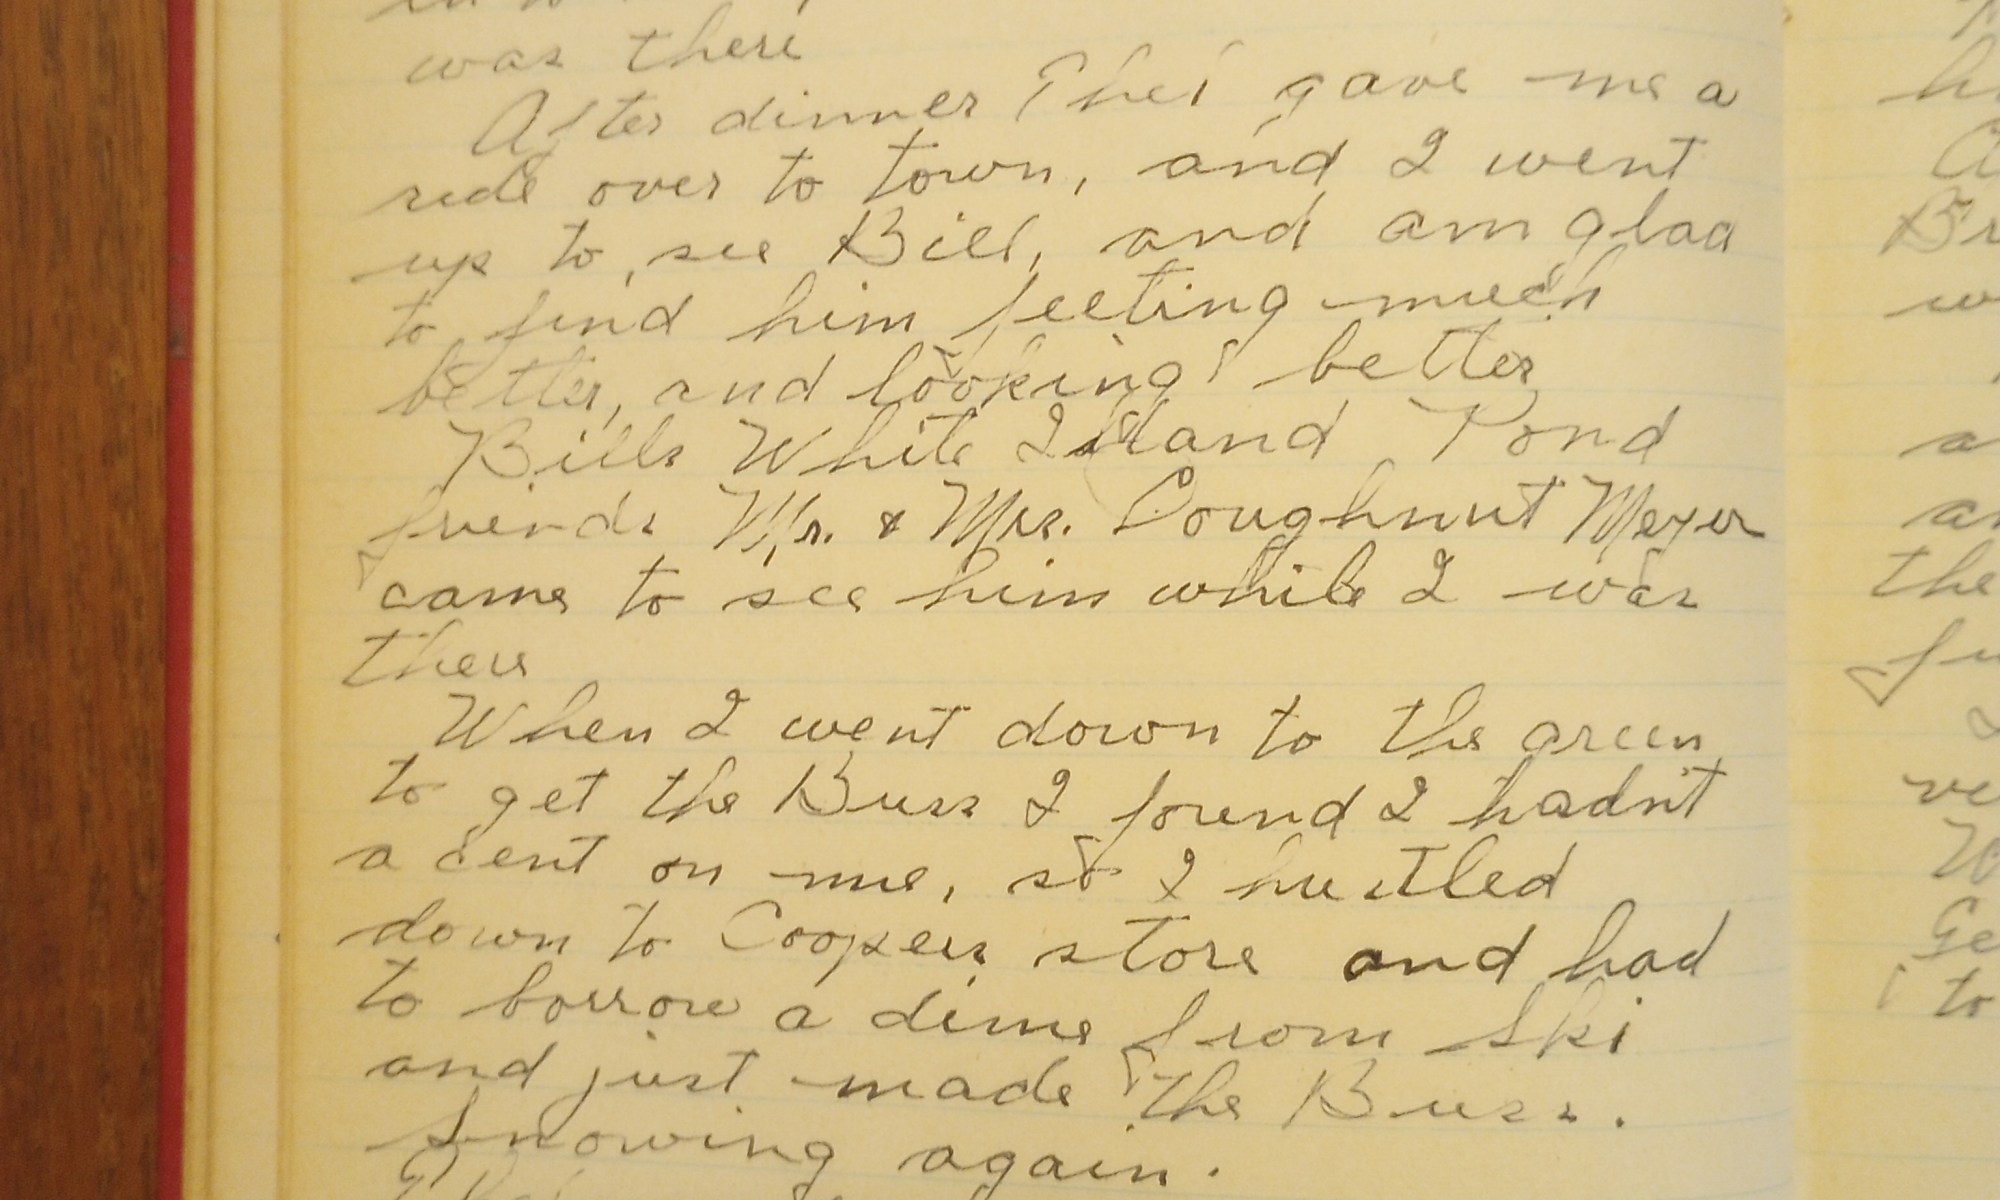 was there
After dinner They gave me a
ride over to town, and I went
up to see Bill, and am glad
to find him feeling much
better, and looking better
Bills White Island Pond
friends Mr. & Mrs. Doughnut Meyer
came to see him while I was
there
When I went down to the green
to get the Buss I found I hadn't
a cent on me, so I hustled
down to Coopers store and had
to borrow a dime from Ski
and just made the Buss.
Snowing again.
the
to